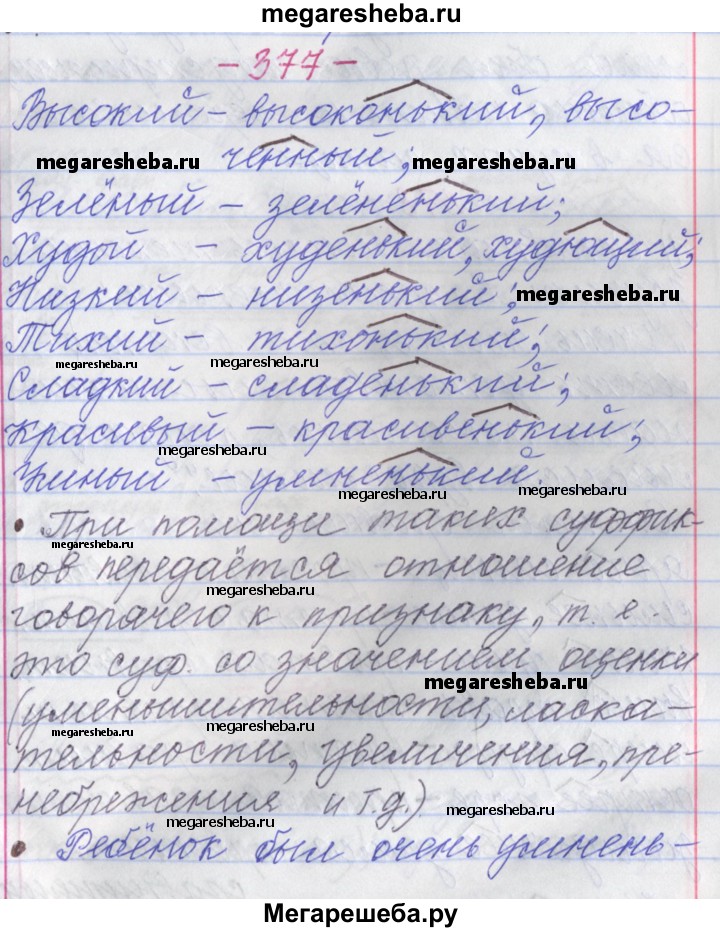 megaresheba.ru
- 377 -
Высокий - высоконький, высо-
ченный;
megaresheba.ru megaresheba.ru
Зелёный - зелёненький;
Худой - худенький, худющий;
Низкий - низенький;
megaresheba.ru
Тихий - тихонький;
megaresheba.ru megaresheba.ru
Сладкий - сладенький;
Красивый - красивенький;
megaresheba.ru
Умный - умненький.
megaresheba.ru megaresheba.ru
• При помощи таких суффик-
megaresheba.ru
сов передаётся отношение
megaresheba.ru
говорячего к признаку, т. е.
это суф. со значением оценки
megaresheba.ru
(уменьшительности, ласка-
megaresheba.ru megaresheba.ru
тельности, увеличения, пре-
небрежения и т.д.)
megaresheba.ru megaresheba.ru
• Ребёнок был очень умнень-
Мегарешеба.ру